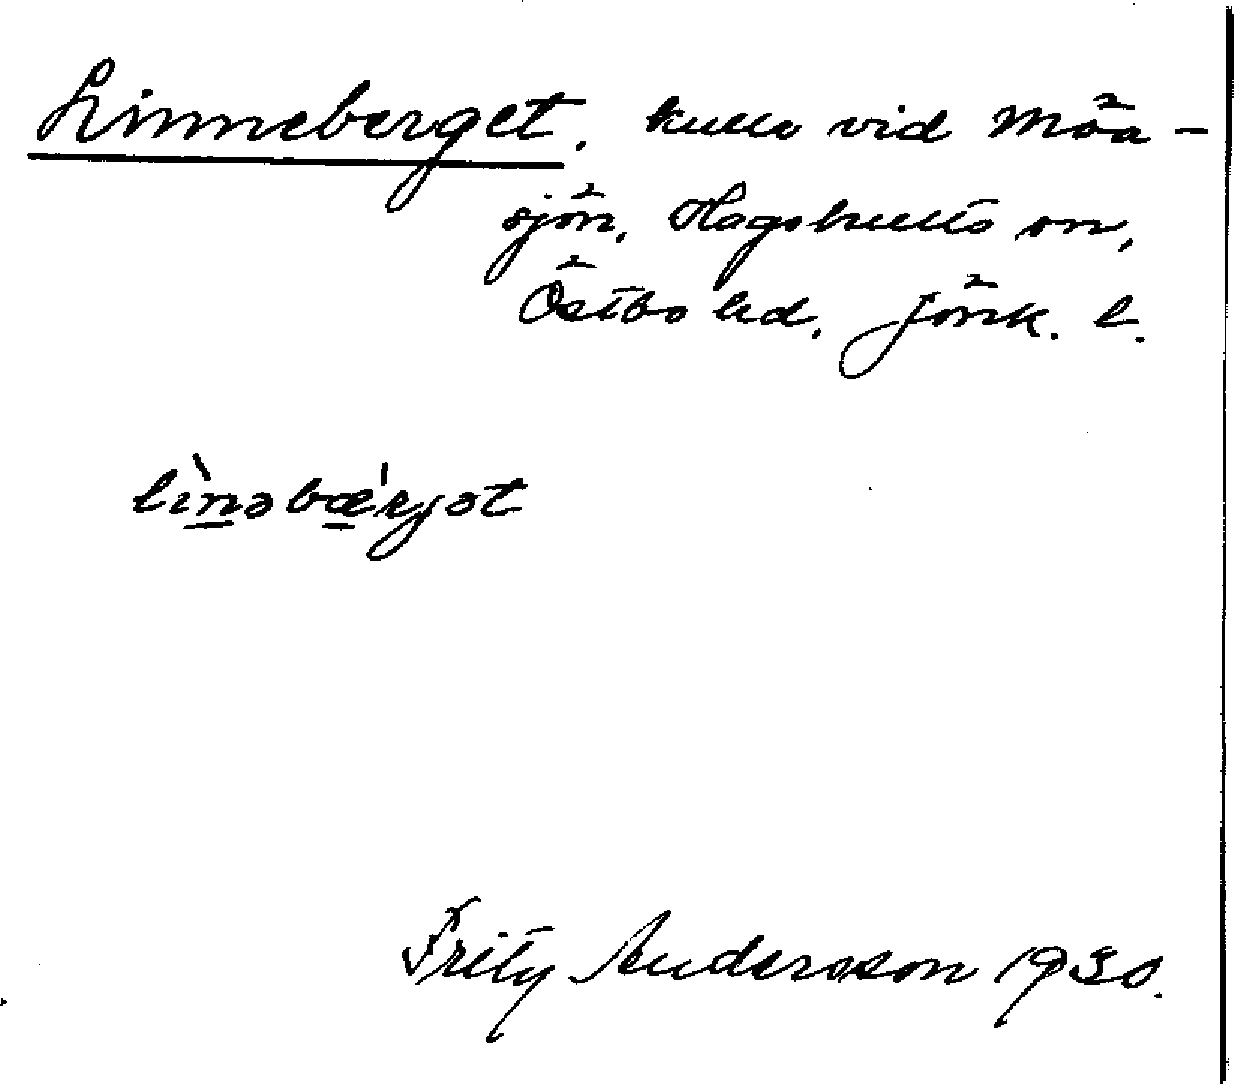 Linneberget, kulle vid Möa-
sjön, Hagshults sn,
Östbo hd, Jönk. l.
lìnəbæ'rjət
Fritz Andersson 1930.